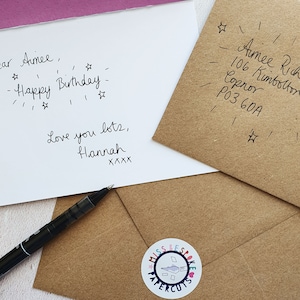 ar Aimee,
Happy Birthday
Love you lots,
Hannah
xxxx
Aimee Rich
106 Kimbolton
Copnor
PO3 6DA
MISS BESPOKE
PAPERCUTS